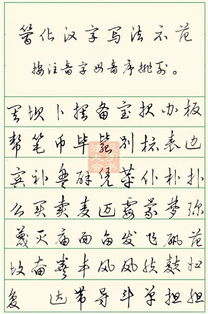 简化汉字写法示范
按注音字母音序排列。
罢坝卜摆备宝报办板
帮笔币毕毙别标表边
宾补盘辟凭苹仆朴扑
么买卖麦迈霉蒙梦弥
蔑灭庙面亩发飞矾范
坟奋粪丰凤风肤麸
复 达带导斗单担胆